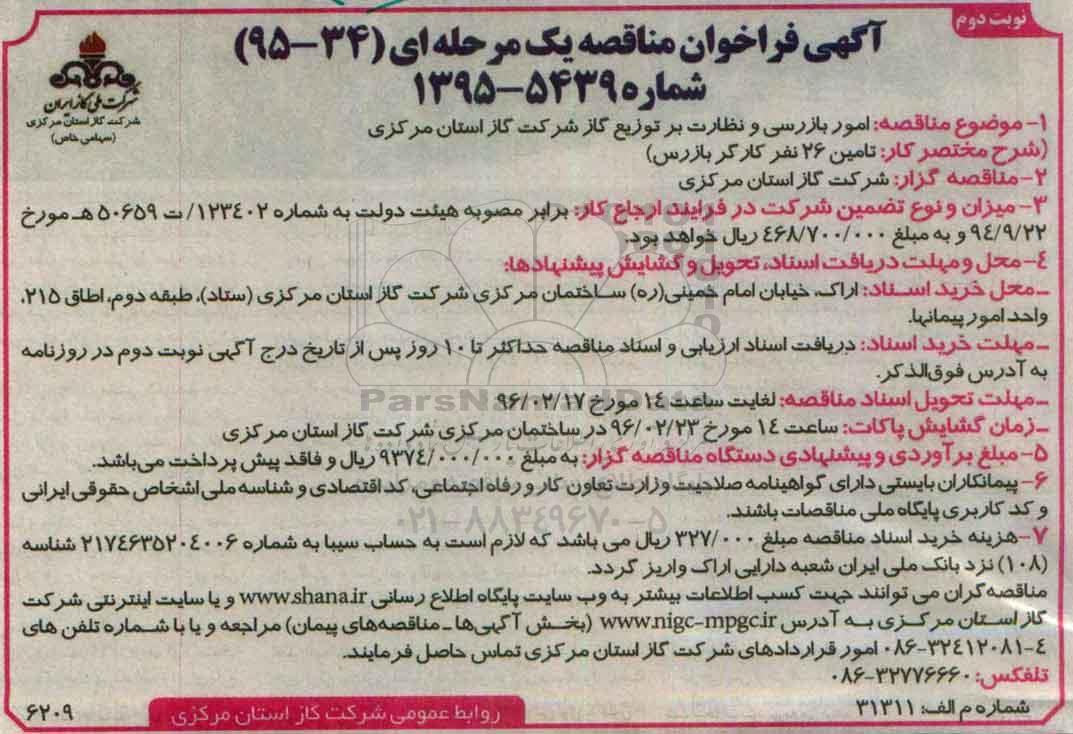 نوبت دوم
آگهی فراخوان مناقصه یک مرحله ای (۳۴-۹۵)
شماره ۵۴۳۹-۱۳۹۵
شرکت ملی گاز ایران
شرکت گاز استان مرکزی
(سهامی خاص)
۱- موضوع مناقصه: امور بازرسی و نظارت بر توزیع گاز شرکت گاز استان مرکزی
(شرح مختصر کار: تامین ۲۶ نفر کارگر بازرس)
۲- مناقصه گزار: شرکت گاز استان مرکزی
۳- میزان و نوع تضمین شرکت در فرایند ارجاع کار: برابر مصوبه هیئت دولت به شماره ۱۲۳۴۰۲/ ت ۵۰۶۵۹ هـ مورخ
۹۴/۹/۲۲ و به مبلغ ۴۶۸/۷۰۰/۰۰۰ ریال خواهد بود.
۴- محل و مهلت دریافت اسناد، تحویل و گشایش پیشنهادها:
ـ محل خرید اسناد: اراک، خیابان امام خمینی(ره) ساختمان مرکزی شرکت گاز استان مرکزی (ستاد)، طبقه دوم، اطاق ۲۱۵،
واحد امور پیمانها.
ـ مهلت خرید اسناد: دریافت اسناد ارزیابی و اسناد مناقصه حداکثر تا ۱۰ روز پس از تاریخ درج آگهی نوبت دوم در روزنامه
به آدرس فوق‌الذکر.
ـ مهلت تحویل اسناد مناقصه: لغایت ساعت ۱۴ مورخ ۹۶/۰۲/۱۷
ـ زمان گشایش پاکات: ساعت ۱۴ مورخ ۹۶/۰۲/۲۳ در ساختمان مرکزی شرکت گاز استان مرکزی
۵- مبلغ برآوردی و پیشنهادی دستگاه مناقصه گزار: به مبلغ ۹۳۷۴/۰۰۰/۰۰۰ ریال و فاقد پیش پرداخت می‌باشد.
۶- پیمانکاران بایستی دارای گواهینامه صلاحیت وزارت تعاون کار و رفاه اجتماعی، کد اقتصادی و شناسه ملی اشخاص حقوقی ایرانی
و کد کاربری پایگاه ملی مناقصات باشند.
۷- هزینه خرید اسناد مناقصه مبلغ ۳۲۷/۰۰۰ ریال می باشد که لازم است به حساب سیبا به شماره ۲۱۷۴۶۳۵۲۰۴۰۰۶ شناسه
(۱۰۸) نزد بانک ملی ایران شعبه دارایی اراک واریز گردد.
مناقصه گران می توانند جهت کسب اطلاعات بیشتر به وب سایت پایگاه اطلاع رسانی www.shana.ir و یا سایت اینترنتی شرکت
گاز استان مرکزی به آدرس www.nigc-mpgc.ir (بخش آگهی‌ها ـ مناقصه‌های پیمان) مراجعه و یا با شماره تلفن های
۴-۰۸۶-۳۲۴۱۲۰۸۱ امور قراردادهای شرکت گاز استان مرکزی تماس حاصل فرمایند.
تلفکس: ۰۸۶-۳۲۷۷۶۶۶۰
شماره م الف: ۳۱۳۱۱
روابط عمومی شرکت گاز استان مرکزی
۶۲۰۹
ParsNamadData
۰۲۱-۸۸۳۴۹۶۷۰-۵